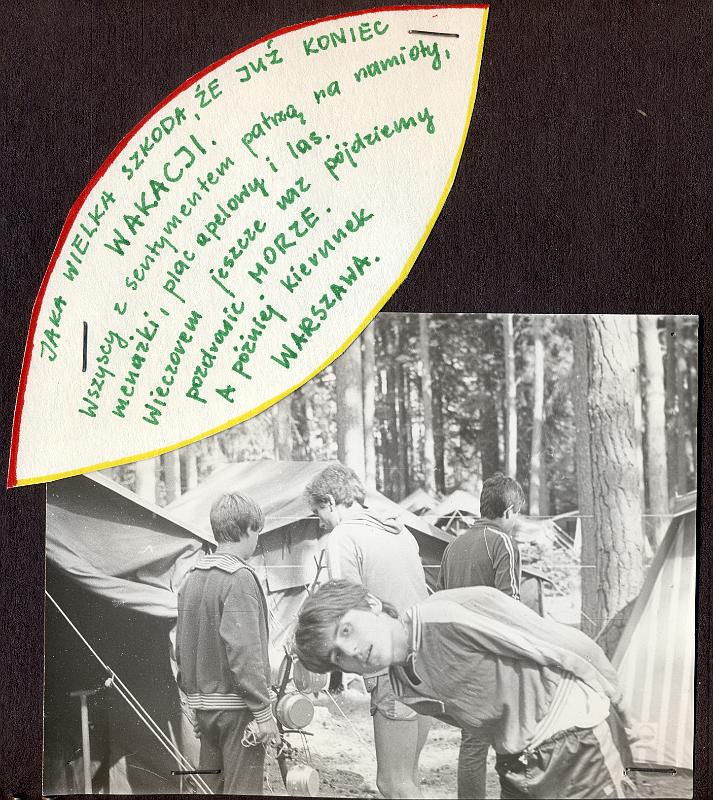 JAKA WIELKA SZKODA, ŻE JUŻ KONIEC
WAKACJI.
Wszyscy z sentymentem patrzą na namioty,
menażki, plac apelowy i las.
Wieczorem jeszcze raz pójdziemy
pozdrowić MORZE.
A później kierunek
WARSZAWA.